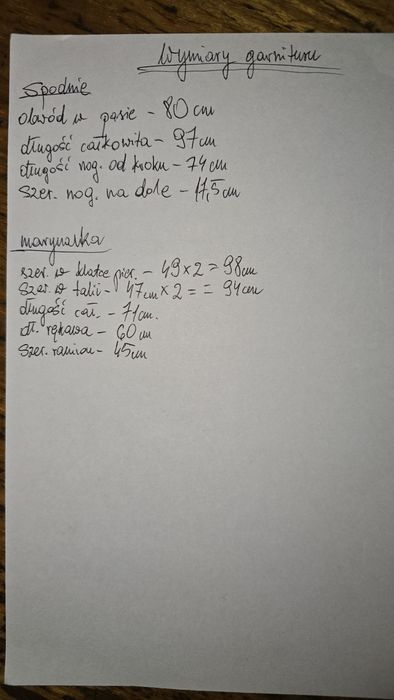 Wymiary garnituru
Spodnie
obwód w pasie - 80 cm
długość całkowita - 97 cm
długość nog. od kroku - 74 cm
szer. nog. na dole - 17,5 cm
marynarka
szer. w klatce pier. - 49 x 2 = 98 cm
szer. w talii - 47 cm x 2 = = 94 cm
długość cał. - 71 cm.
dł. rękawa - 60 cm
szer. ramion - 45 cm